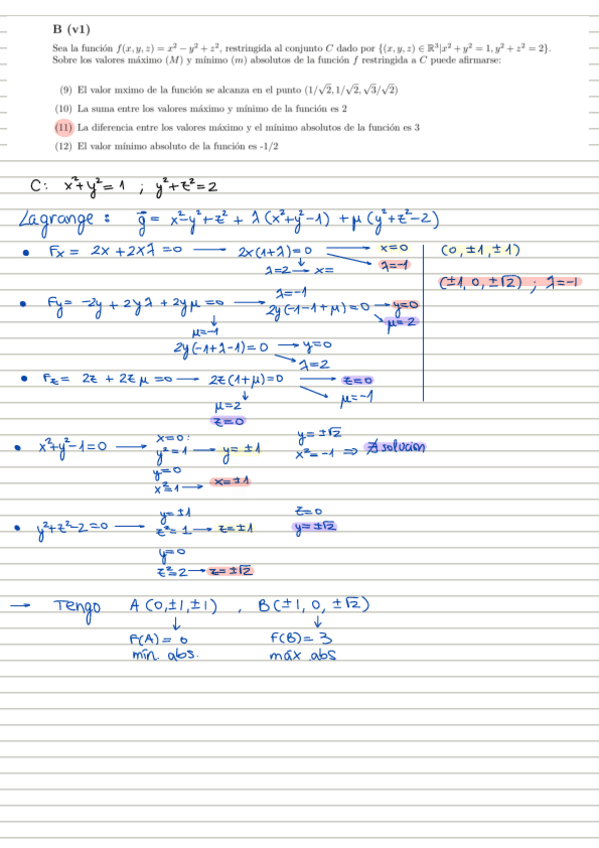 B (v1)
Sea la función f(x, y, z) = x² − y² + z², restringida al conjunto C dado por {(x, y, z) ∈ ℝ³|x² + y² = 1, y² + z² = 2}.
Sobre los valores máximo (M) y mínimo (m) absolutos de la función f restringida a C puede afirmarse:
(9) El valor mximo de la función se alcanza en el punto (1/√2, 1/√2, √3/√2)
(10) La suma entre los valores máximo y mínimo de la función es 2
(11) La diferencia entre los valores máximo y el mínimo absolutos de la función es 3
(12) El valor mínimo absoluto de la función es -1/2
C: x²+y²=1 ; y²+z²=2
Lagrange: g = x²-y²+z² + λ(x²+y²-1) + μ(y²+z²-2)
• Fx = 2x + 2xλ = 0 → 2x(1+λ)=0 → x=0 (0, ±1, ±1)
λ=2 → x= λ=-1 (±1, 0, ±√2) ; λ=-1
• Fy = -2y + 2yλ + 2yμ = 0 → λ=-1
2y(-1-1+μ)=0 → y=0
μ=-1 μ=2
2y(-1+λ-1)=0 → y=0
λ=2
• Fz = 2z + 2zμ = 0 → 2z(1+μ)=0 → z=0
μ=2 μ=-1
z=0
• x²+y²-1=0 → x=0: y=±√2
y²=1 → y=±1 x²=-1 ⇒ ∄ solucion
y=0
x²=1 → x=±1
• y²+z²-2=0 → y=±1 z=0
z²=1 → z=±1 y=±√2
y=0
z²=2 → z=±√2
→ Tengo A(0,±1,±1) , B(±1, 0, ±√2)
F(A)=0 f(B)=3
mín. abs. máx abs